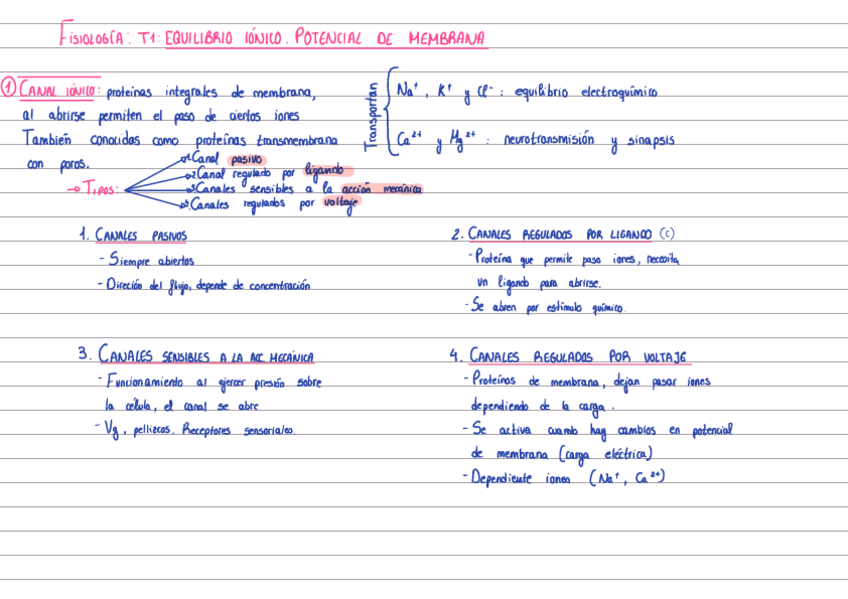 FISIOLOGÍA: T1: EQUILIBRIO IÓNICO. POTENCIAL DE MEMBRANA
① CANAL IÓNICO: proteínas integrales de membrana,
al abrirse permiten el paso de ciertos iones
También conocidas como proteínas transmembrana
con poros.
Transportan
Na⁺, K⁺ y Cl⁻: equilibrio electroquímico
Ca²⁺ y Mg²⁺: neurotransmisión y sinapsis
→ TIPOS:
1 Canal pasivo
2 Canal regulado por ligando
3 Canales sensibles a la acción mecánica
Canales regulados por voltaje
1. CANALES PASIVOS
- Siempre abiertos
- Direción del flujo, depende de concentración
2. CANALES REGULADOS POR LIGANDO (C)
- Proteína que permite paso iones, necesita
un ligando para abrirse.
- Se abren por estímulo químico.
3. CANALES SENSIBLES A LA ACC. MECÁNICA
- Funcionamiento al ejercer presión sobre
la célula, el canal se abre
- Vg, pellizcos. Receptores sensoriales.
4. CANALES REGULADOS POR VOLTAJE
- Proteínas de membrana, dejan pasar iones
dependiendo de la carga.
- Se activa cuando hay cambios en potencial
de membrana (carga eléctrica)
- Dependiente iones (Na⁺, Ca²⁺)